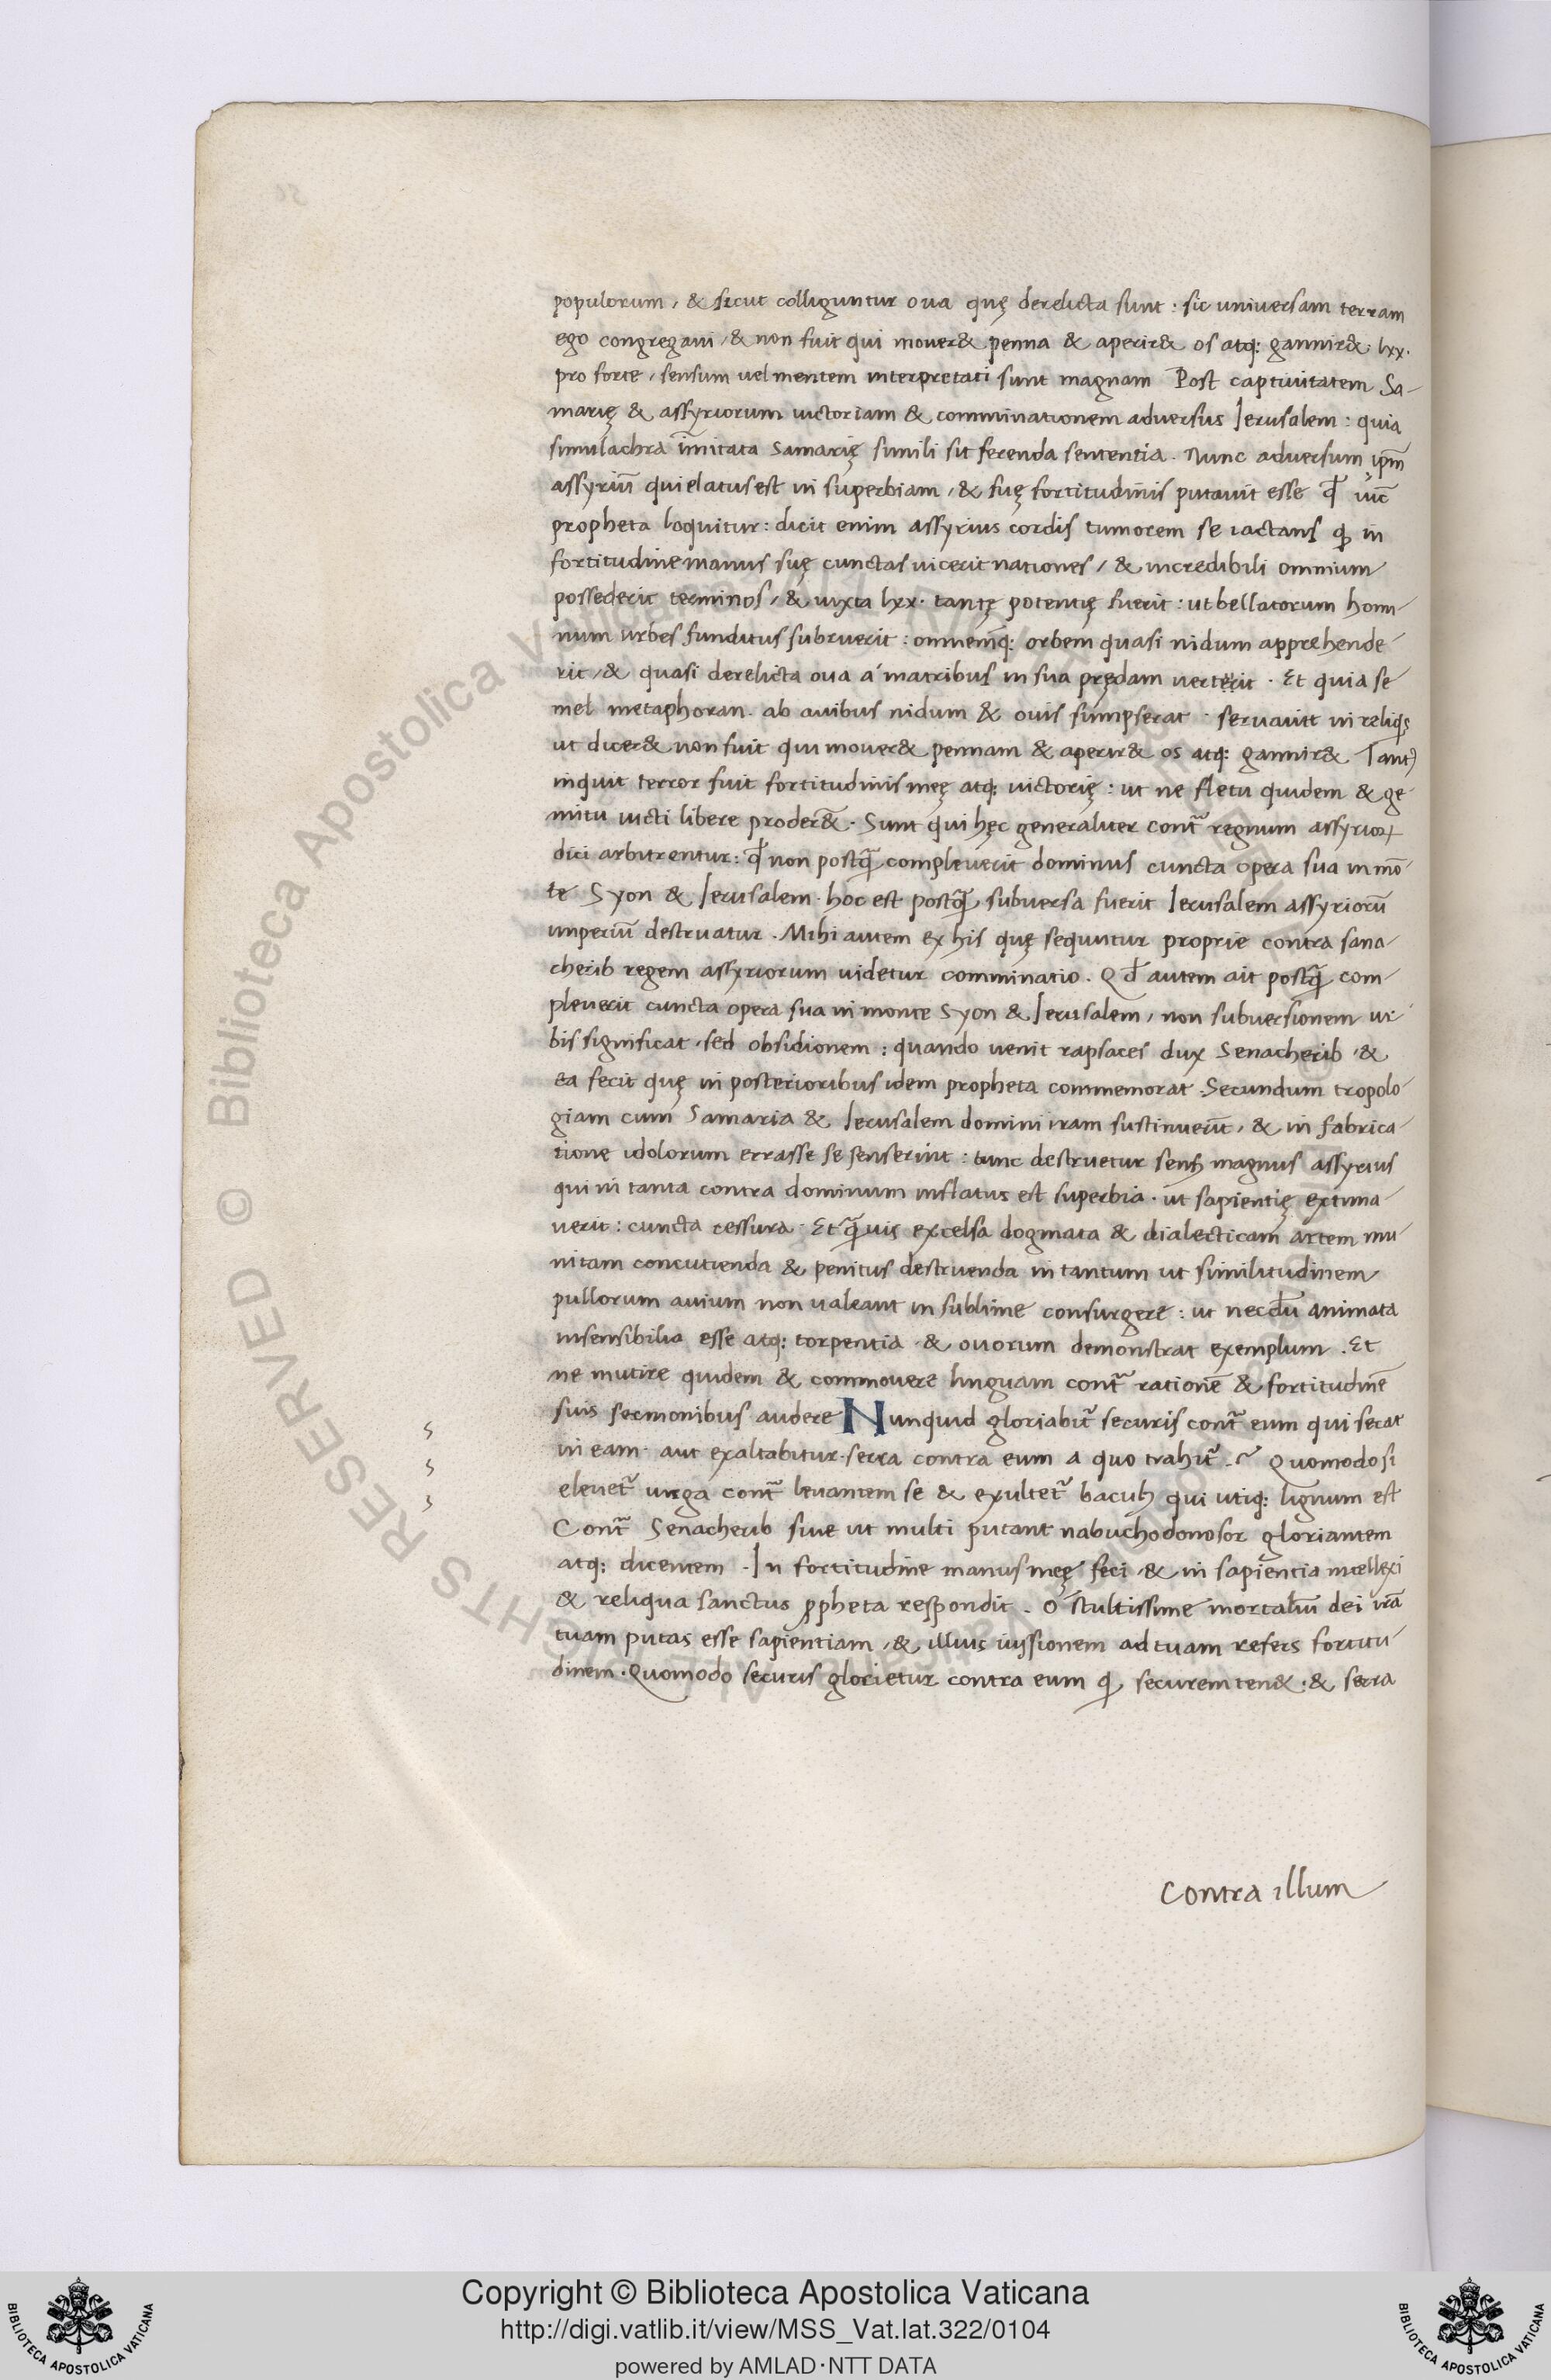 populorum, & sicut colliguntur oua quę derelicta sunt: sic universam terram
ego congregaui, & non fuit qui mouer& penna & aperir& os atq: gannir& lxx.
pro forte, sensum uel mentem interpretati sunt magnam Post captiuitatem Sa-
marię & assyriorum uictoriam & comminationem adversus Jerusalem: quia
simulachra im̅itata samarię simili sit ferenda sententia. Nunc adversum ip̅m
assyriu̅ qui elatus est in superbiam, & suę fortitudinis putauit esse
propheta loquitur: dicit enim assyrius cordis tumorem se iactans q in
fortitudine manus suę cunctas uicerit nationes, & incredibili omnium
possederit terminos, & iuxta lxx. tantę potentię fuerit: ut bellatorum homi-
num urbes funditus subruerit: omnemq: orbem quasi nidum apprehende-
rit, & quasi derelicta oua á matribus in sua prędam uerterit. Et quia se
mel metaphoran. ab auibus nidum & ouis sumpserat. seruauitt in reliqs
ut dicer& non fuit qui mouer& pennam & aperir& os atq: gannir& Tant)
inquit terror fuit fortitudinis meę atq: uictorię: ut ne fletu quidem & ge-
mitu uicti libere proder&̅. Sunt qui hęc generaliter cont̃ regnum assyrioꝝ
dici arbitrentur: qđ non postq̃ compleuerit dominus cuncta opera sua in mo̅-
te Syon & Jerusalem. hoc est postq̃ subuersa fuerit Jerusalem assyrioru̅
imperiu̅ destruatur. Mihi autem ex his quę sequntur proprie contra sena-
cherib regem assyriorum uidetur comminatio. Qđ autem ait postq̃ com-
pleuerit cuncta opera sua in monte Syon & Jerusalem, non subuersionem ur-
bis significat, sed obsidionem: quando uenit rapsaces dux Senacherib, &
ea fecit quę in posterioribus idem propheta commemorat. Secundum tropolo-
giam cum Samaria & Jerusalem domini iram sustinueri̅t, & in fabrica-
tione idolorum errasse se senserint: tunc destruetur sensꝫ magnus assyrius
qui in tanta contra dominum inflatus est superbia. ut sapientię extima-
uerit: cuncta cessura. Et q̃uis excelsa dogmata & dialecticam artem mu-
nitam concutienda & penitus destruenda in tantum ut similitudinem
pullorum auium non ualeant in sublime consurgere: ut necdu̅ animata
insensibilia esse atq: torpentia & ouorum demonstrat exemplum. Et
ne mutire quidem & commouere linguam cont̃ ratione̅ & fortitudine̅
suis sermonibus audere Nunquid gloriabit̃ securis cont̃ eum qui secat
in eam. aut exaltabitur. serra contra eum a quo trahit̃. Quomodo si
eleuet̃ uirga cont̃ leuantem se & exultet̃ baculꝫ qui utiq: lignum est
Cont̃ Senacherib siue ut multi putant nabuchodonosor gloriantem
atq: dicentem. In fortitudine manus meę feci, & in sapientia intellexi
& reliqua sanctus ꝓpheta respondit. O stultissime mortaliu̅ dei ira̅
tuam putas esse sapientiam, & illius iussionem ad tuam refers fortitu-
dinem. Quomodo securis glorietur contra eum q securem ten&: & serra
contra illum
Copyright © Biblioteca Apostolica Vaticana
http://digi.vatlib.it/view/MSS_Vat.lat.322/0104
powered by AMLAD·NTT DATA
BIBLIOTECA APOSTOLICA VATICANA
BIBLIOTECA APOSTOLICA VATICANA